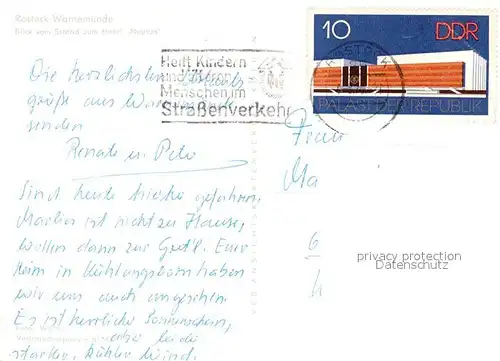 Rostock-Warnemünde
Blick vom Strand zum Hotel „Neptun"
10
DDR
PALAST DER REPUBLIK
ROSTOCK
Helft Kindern
und älteren
Menschen im
Straßenverkehr
Die herzlichsten Urlaubs-
grüße aus Warnemünde
senden
Renate u. Peter
Sind heute hierher gefahren,
ist nicht zu Hause,
wollen dann zur Euer
Heim in Kühlungsborn haben
wir uns auch angesehen.
Es ist herrlicher Sonnenschein,
aber leider
starker, kühler Wind.
Frau
Ma
6
privacy protection
Datenschutz